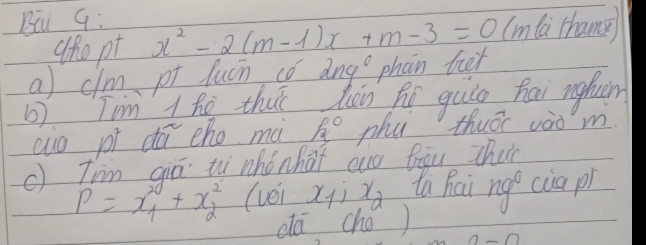 Bài 4:
Cho pt x² - 2(m-1)x + m-3 = 0 (m là tham số)
a) c/m pt luôn có 2 ng⁰ phân biệt
b) Tìm 1 hệ thức liên hệ giữa hai nghiệm
của pt đã cho mà k⁰ phụ thuộc vào m.
c) Tìm giá trị nhỏ nhất của biểu thức
P = x₁² + x₂² (với x₁; x₂ là hai ng⁰ của pt
đã cho)